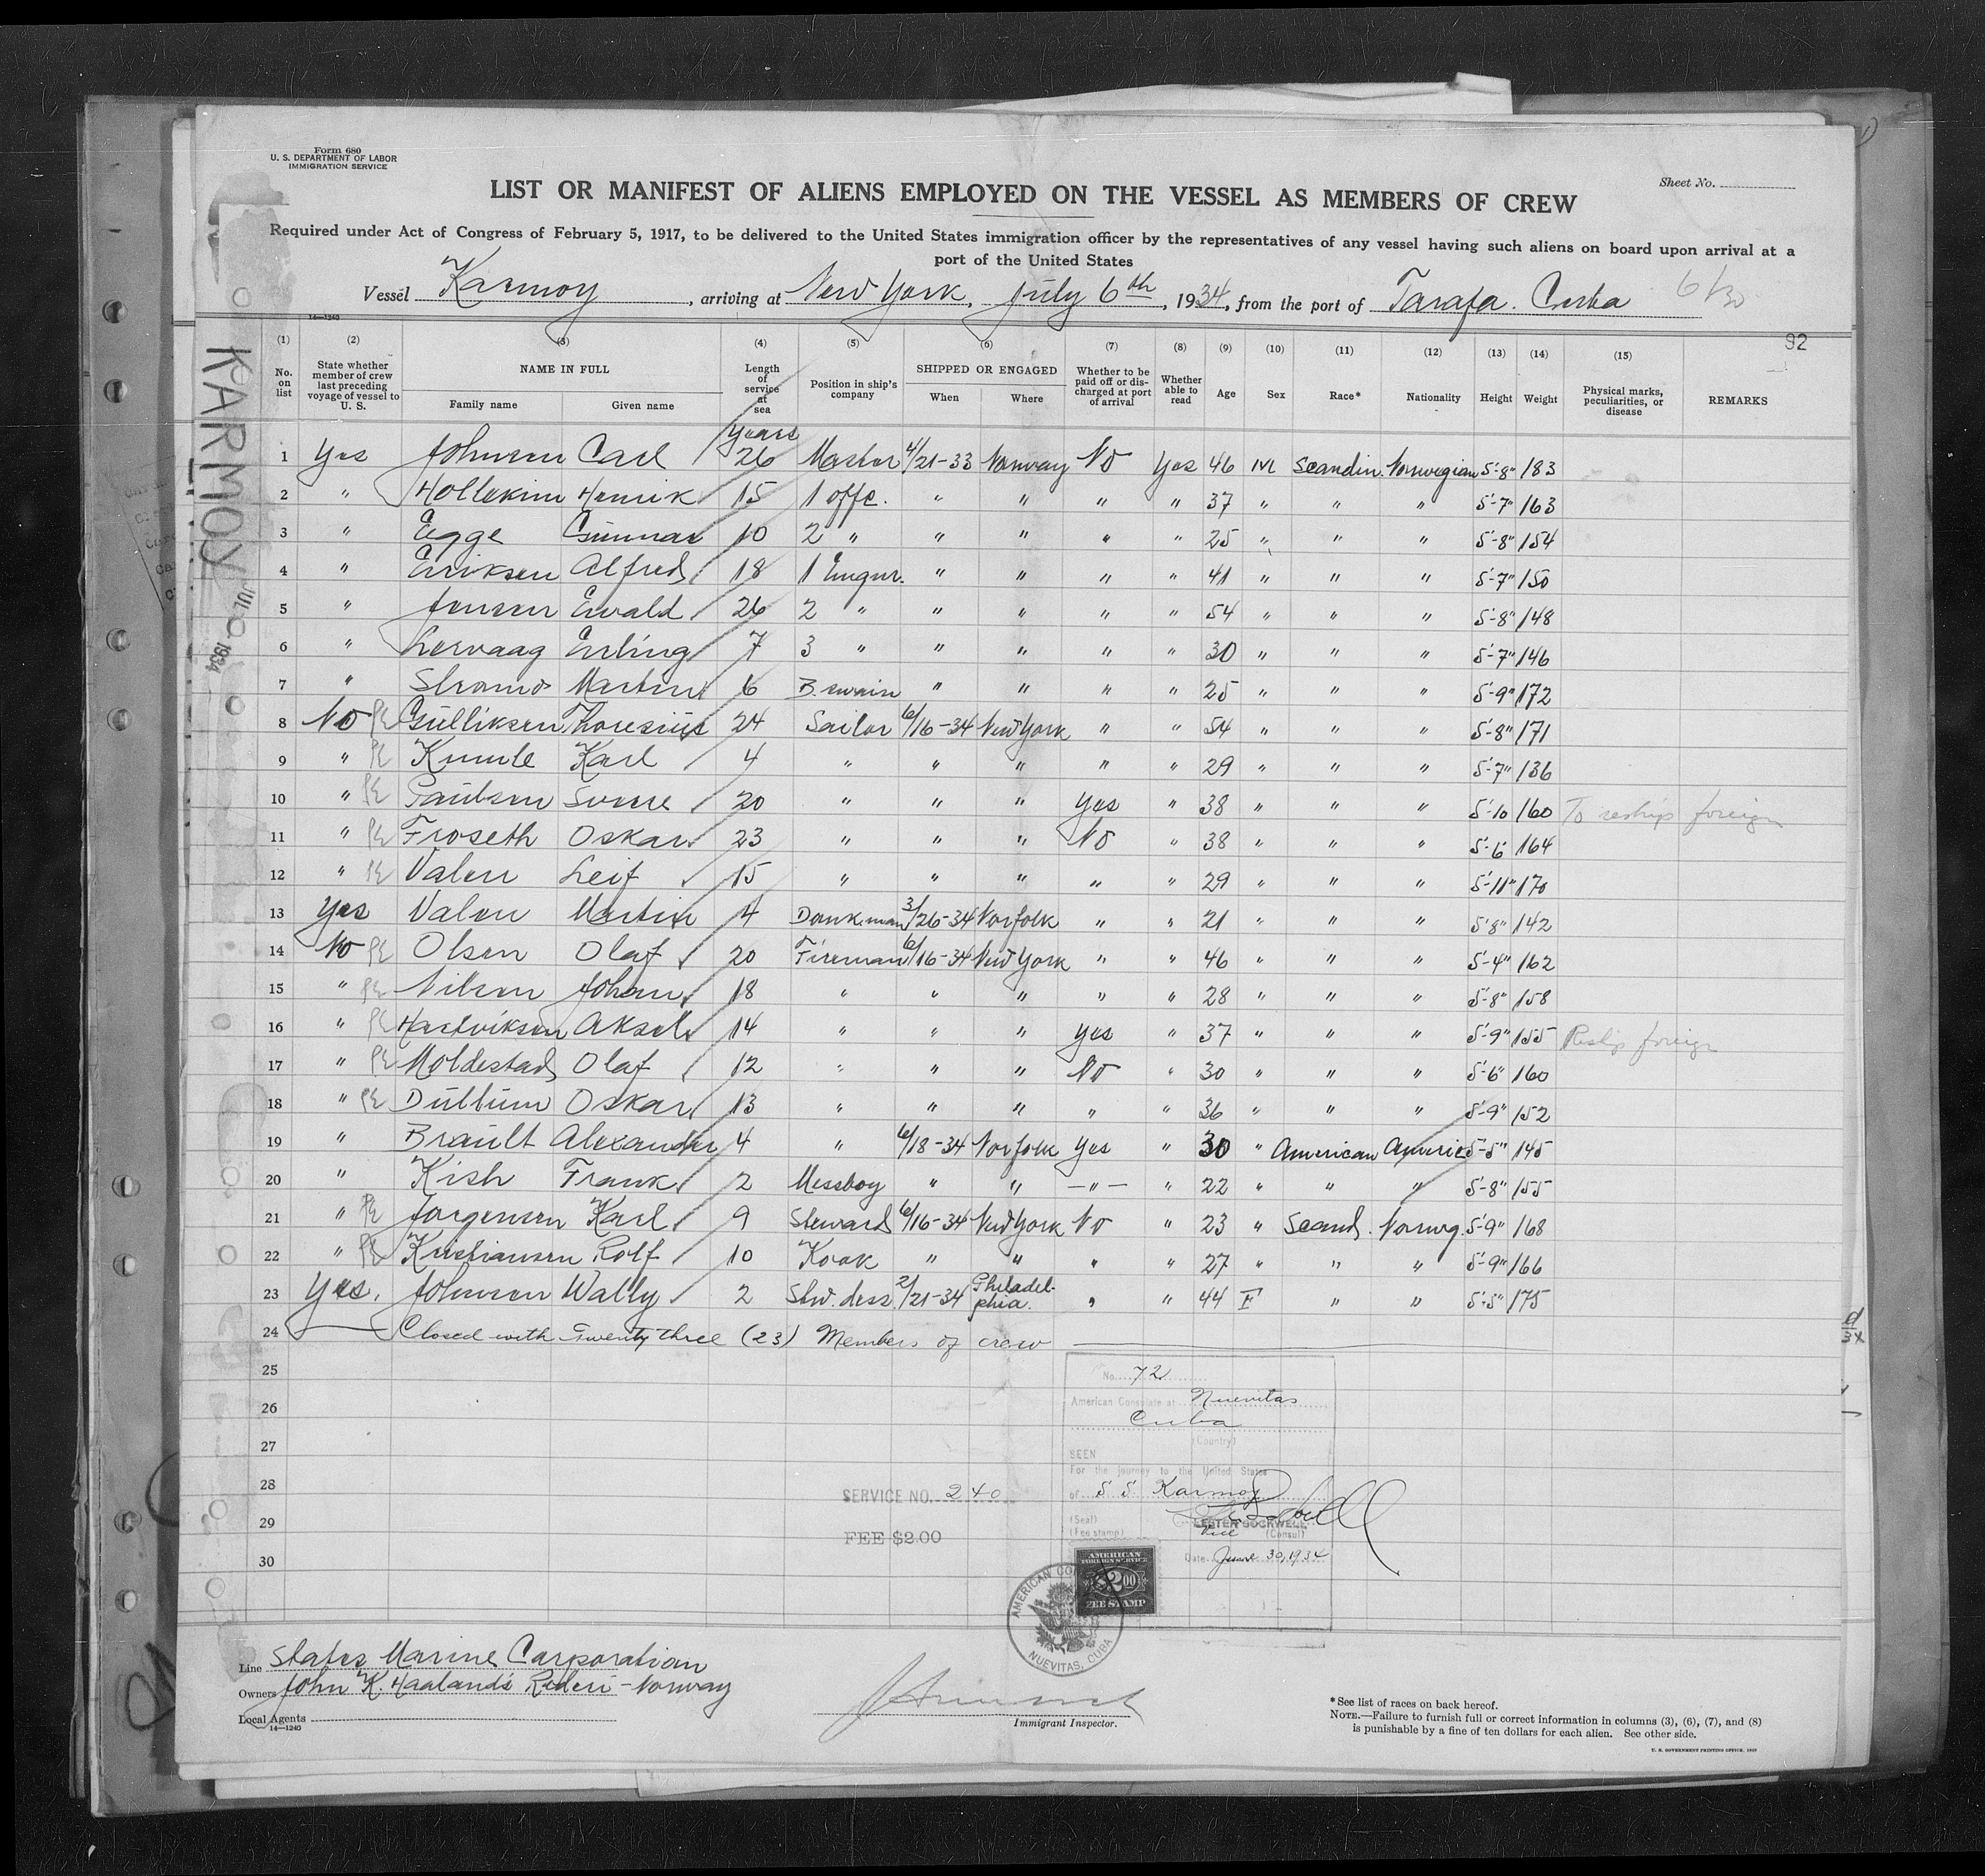 Form 680
U. S. DEPARTMENT OF LABOR
IMMIGRATION SERVICE
Sheet No.
LIST OR MANIFEST OF ALIENS EMPLOYED ON THE VESSEL AS MEMBERS OF CREW
Required under Act of Congress of February 5, 1917, to be delivered to the United States immigration officer by the representatives of any vessel having such aliens on board upon arrival at a
port of the United States
Vessel Karmoy, arriving at New York, July 6th, 1934, from the port of Tarafa. Cuba 6/30
14—1240
92
(1) (2) (3) (4) (5) (6) (7) (8) (9) (10) (11) (12) (13) (14) (15)
No. on list State whether member of crew last preceding voyage of vessel to U. S. NAME IN FULL Family name Given name Length of service at sea Position in ship's company SHIPPED OR ENGAGED When Where Whether to be paid off or discharged at port of arrival Whether able to read Age Sex Race* Nationality Height Weight Physical marks, peculiarities, or disease REMARKS
KARMOY
JUL 6 1934
years
1 Yes Johnsen Carl 26 Master 4/21-33 Norway No Yes 46 M Scandin. Norwegian 5'-8" 183
2 " Hollekim Henrik 15 1 offc. " " " " 37 " " " 5'-7" 163
3 " Egge Gunnar 10 2 " " " " " 25 " " " 5'-8" 154
4 " Eriksen Alfred 18 1 Engnr. " " " " 41 " " " 5'-7" 150
5 " Jensen Ewald 26 2 " " " " " 54 " " " 5'-8" 148
6 " Lervaag Erling 7 3 " " " " " 30 " " " 5'-7" 146
7 " Stromo Martin 6 B.swain " " " " 25 " " " 5'-9" 172
8 No Gulliksen Thoresius 24 Sailor 6/16-34 New York " " 54 " " " 5'-8" 171
9 " Kumle Karl 4 " " " " " 29 " " " 5'-7" 136
10 " Paulsen Sverre 20 " " " Yes " 38 " " " 5'-10 160 To reship foreign
11 " Froseth Oskar 23 " " " No " 38 " " " 5'-6 164
12 " Valen Leif 15 " " " " " 29 " " " 5'-11" 170
13 Yes Valen Martin 4 Donk.man 3/26-34 Norfolk " " 21 " " " 5'8" 142
14 No Olsen Olaf 20 Fireman 6/16-34 New York " " 46 " " " 5'-4" 162
15 " Nilsen Johan 18 " " " " " 28 " " " 5'-8" 158
16 " Hartviksen Aksel 14 " " " Yes " 37 " " " 5'-9" 155 Reship foreign
17 " Moldestad Olaf 12 " " " No " 30 " " " 5'-6" 160
18 " Dullum Oskar 13 " " " " " 36 " " " 5'-9" 152
19 " Brault Alexander 4 " 6/18-34 Norfolk Yes " 30 " American Americ 5'-5" 145
20 " Kish Frank 2 Messboy " " —"— " 22 " " " 5'-8" 155
21 " Jorgensen Karl 9 Steward 6/16-34 New York No " 23 " Scand. Norwg. 5'-9" 168
22 " Kristiansen Rolf 10 Kook " " " " 27 " " " 5'-9" 166
23 Yes. Johnsen Wally 2 Stw.dess. 2/21-34 Philadelphia. " " 44 F " " 5'5" 175
24 Closed with Twenty three (23) Members of crew
25
26
27
28
29
30
No. 72
American Consulate at Nuevitas
Cuba
(Country)
SEEN
For the journey to the United States
of S S Karmoy
(Seal)
LESTER SOCKWELL
(Fee stamp) Vice (Consul)
Date June 30, 1934
SERVICE NO. 240
FEE $2.00
AMERICAN FOREIGN SERVICE
$2.00
FEE STAMP
NUEVITAS, CUBA
Line States Marine Corporation
Owners John K. Haaland's Rederi - Norway
Local Agents
14—1240
Immigrant Inspector.
*See list of races on back hereof.
NOTE.—Failure to furnish full or correct information in columns (3), (6), (7), and (8)
is punishable by a fine of ten dollars for each alien. See other side.
U. S. GOVERNMENT PRINTING OFFICE